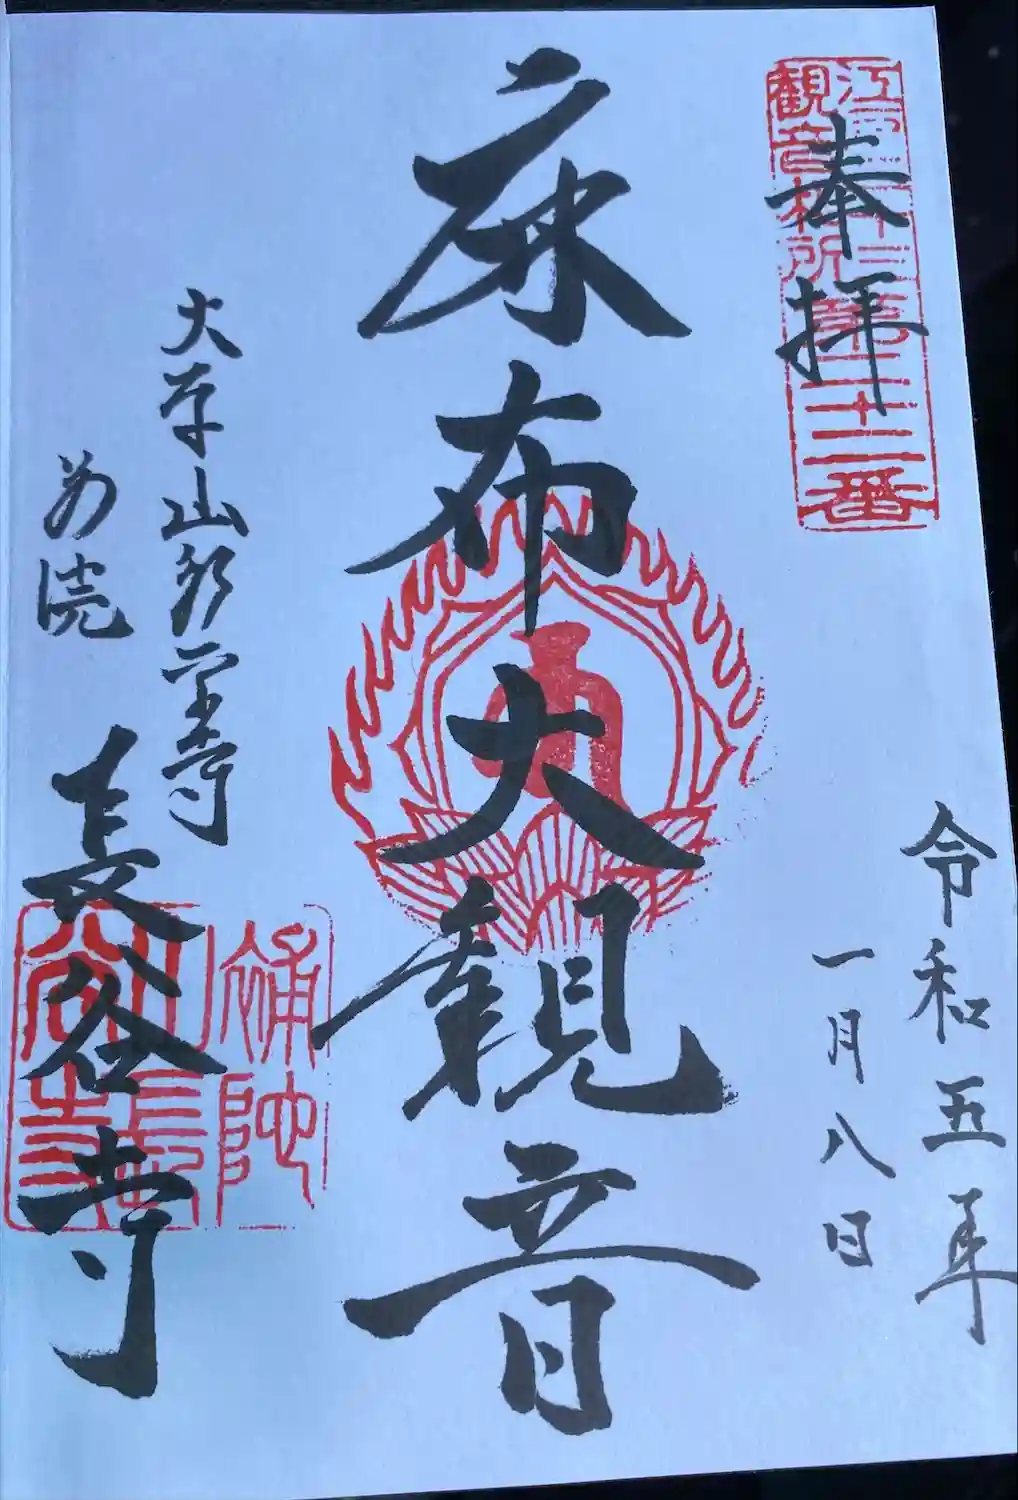 奉拝
江戸三十三
観音札所
第二十二番
令和五年
一月八日
麻布大観音
大本山永平寺
別院
長谷寺